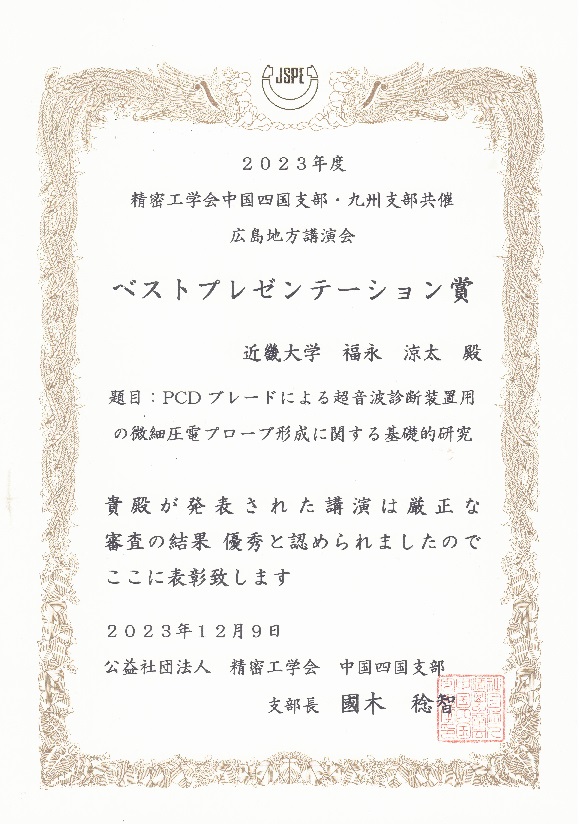 JSPE
2023年度
精密工学会中国四国支部・九州支部共催
広島地方講演会
ベストプレゼンテーション賞
近畿大学 福永 涼太 殿
題目：PCD ブレードによる超音波診断装置用
の微細圧電プローブ形成に関する基礎的研究
貴殿が発表された講演は厳正な
審査の結果 優秀と認められましたので
ここに表彰致します
2023年12月9日
公益社団法人 精密工学会 中国四国支部
支部長 國木 稔智